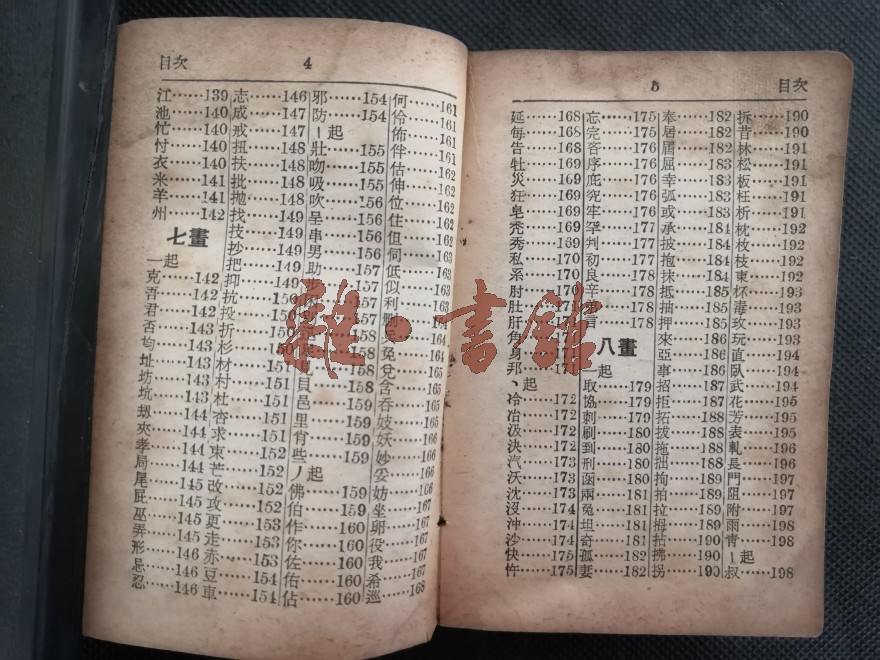 目次 4
江……139
池……140
忙……140
付……140
衣……140
米……141
羊……141
州……142
七畫
一起
克……142
吾……142
君……142
否……143
址……143
坊……143
坑……143
夾……144
孝……144
局……144
尾……145
屁……145
巫……145
弄……145
形……146
忌……146
忍……146
志……146
成……147
戒……147
扭……148
扶……148
批……148
抛……148
找……149
技……149
抄……149
把……149
抑……149
抗……150
投……150
折……150
杉……150
材……151
村……151
杜……151
杏……151
求……152
束……152
芒……152
改……152
攻……152
更……153
走……153
赤……153
豆……154
車……154
邪……154
防……154
丨起
壯……155
吻……155
吸……155
吹……156
呈……156
串……156
男……156
助……157
步……157
貝……158
邑……159
里……159
肯……159
些……159
丿起
佛……159
伯……159
作……160
你……160
佐……160
佑……160
佔……160
何……161
伶……161
佈……161
伴……161
估……162
伸……162
位……162
住……162
但……163
伺……163
低……163
似……163
利
删……164
兔……164
兌……165
含……165
吞……165
妓……165
妖……166
妙……166
妥……166
妨……166
坐……167
卵……167
役……167
我……167
希……168
巡……168
5 目次
延……168
每……168
告……168
牡……169
災……169
狂……169
皂……169
禿……169
秀……169
私……170
系……170
肘……170
肚
肝
角
身
邦
丶起
冷……172
冶……172
汲……172
決……172
汽……173
沃……173
沈……173
沒……174
沖……174
沙……174
快……175
忤……175
忘……175
完……175
吝……175
序……176
庇……176
究……176
牢……176
罕……177
判……177
初……177
良……178
辛……178
言……178
八畫
一起
取……179
協……179
刺……179
刷……180
到……180
刑……180
函……180
兩……181
兔……181
坦……181
奇……181
孤……182
妻……182
奉……182
居……182
屆……182
屈……183
幸……183
弧……183
或……183
披……184
抱……184
抹……184
抵……185
抽……185
押……185
來……186
亞……186
事……186
招……187
拒……187
拓……188
拔……188
拖……188
拙……188
拘……189
拍……189
拉……189
拇……189
拈……190
拂……190
拐……190
拆……190
昔……190
林……191
松……191
板……191
枉……191
析……191
枕……192
枚……192
枝……192
東……192
杯……193
毒……193
玫……193
玩……193
直……194
臥……194
武……194
花……195
芳……195
表……195
軋……196
長……196
門……197
阻……197
附……197
雨……198
青……198
丨起
叔……198
雜·書館